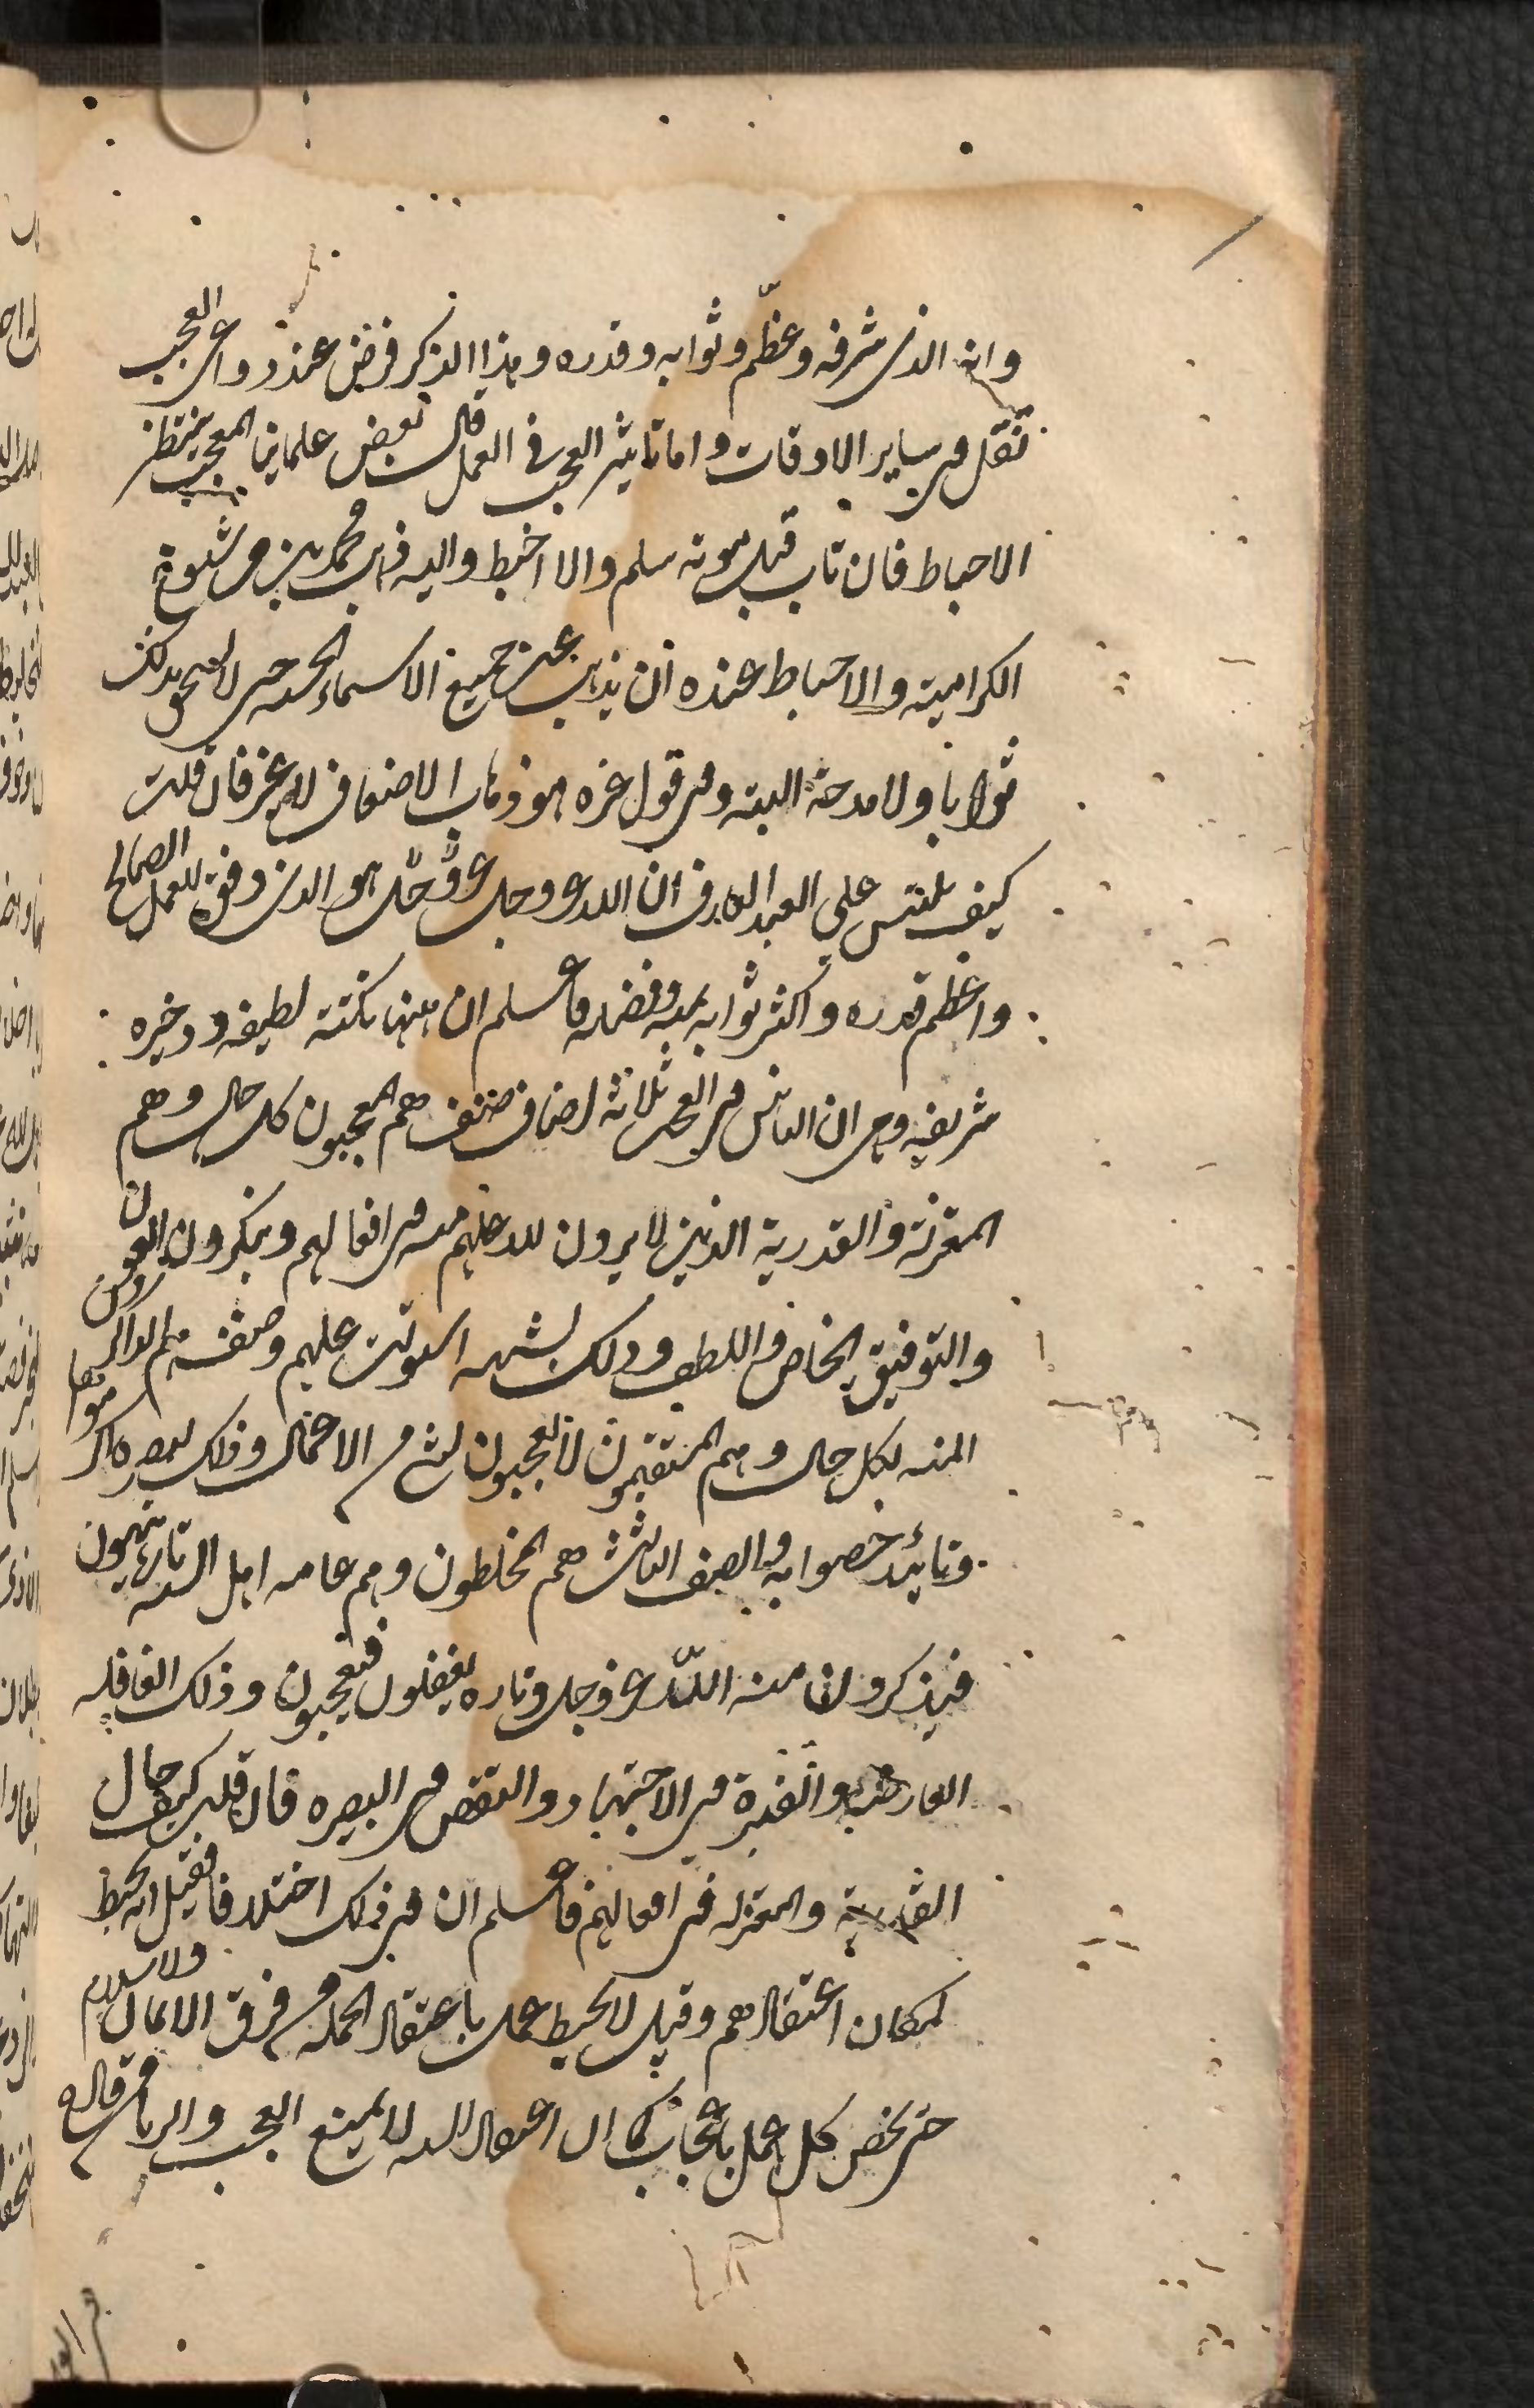 وانه الذى شرفه وعظّم وثوابه وقدره وهذا الذكر فرض عند دواعى العجب
نقل فى ساير الاوقات واما تاثير العجب فى العمل قال بعض علماينا المعجب ينتظر
الاحباط فان تاب قبل موته سلم والا احبط واليه ذهب محمد بن من شيوخ
الكرامية والاحباط عنده ان يذهب عن جميع الاسماء الحسنه حتى لا يستحق بذلك
ثوابا ولا مدحة البته وفى قول غيره هو ذهاب الاضعاف لا غير فان قلت
كيف يلتبس على العبد العارف ان الله عز وجل عز وجل هو الذى وفقه للعمل الصالح
واعظم قدره واكثر ثوابه بمنه وفضله فاعلم ان ههنا نكتة لطيفه ودخيره
شريفه وهى ان الناس فى العجب ثلاثة اصناف صنف هم المعجبون بكل حال وهم
المعتزلة والقدرية الذين لا يرون لله عليهم منه فى افعالهم وينكرون العون
والتوفيق الخاص واللطف وذلك لشبهه استولت عليهم وصنف هم الذاكرون
المنه بكل حال وهم المستقيمون لا يعجبون بشئ من الاعمال وذلك لبصيرة اكرموا بها
وتائيد خصوا به والصنف الثالث هم المخلطون وهم عامه اهل السنه تارة ينتبهون
فيذكرون منه اللّه عز وجل وتاره يغفلون فيعجبون وذلك الغافله
العارضه والفترة فى الاجتهاد والنقص فى البصيره فان قلت كيف حال
القدرية والمعتزله فى افعالهم فاعلم ان فى ذلك اختلافا فقيل انه يحبط
لمكان اعتقادهم وقيل لا يحبط عمل باعتقاد الجمله من فرق الاسلام
حتى يخص كل عمل باعجاب كما ان اعتقاد السنه لا يمنع العجب والريا